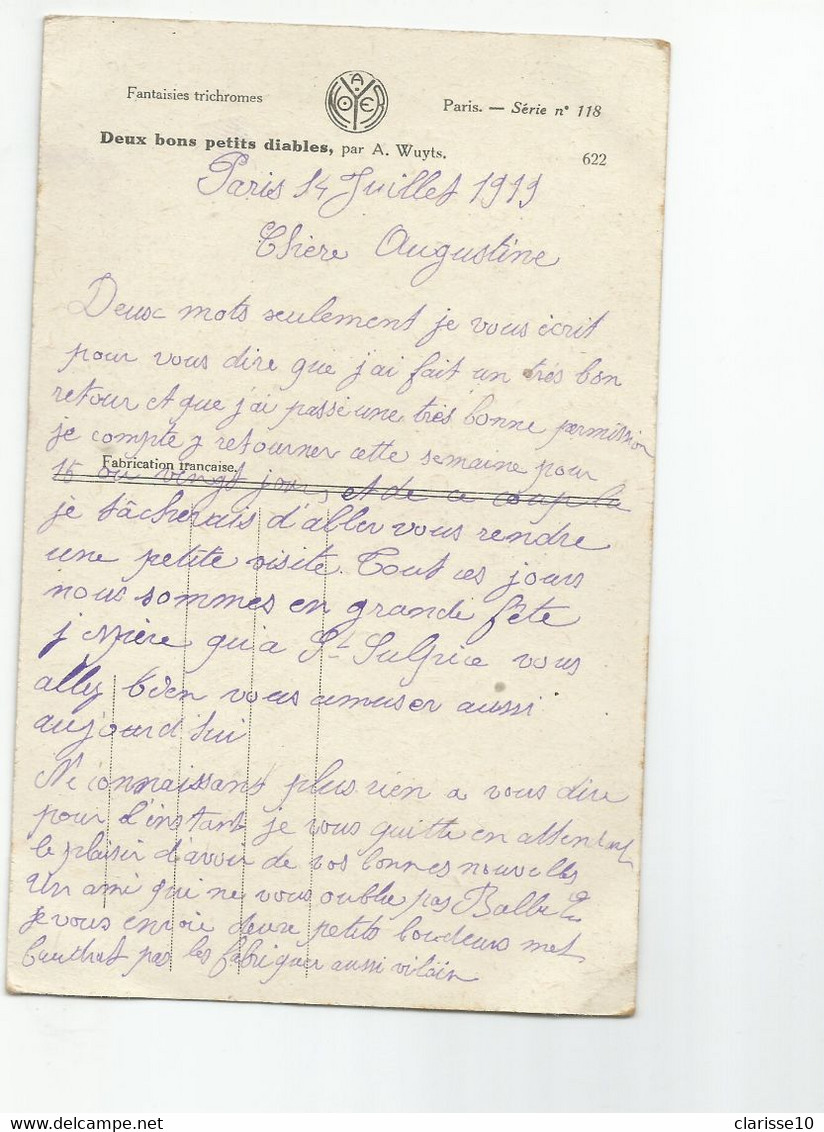 Fantaisies trichromes
A NOYER
Paris. — Série n° 118
Deux bons petits diables, par A. Wuyts.
622
Paris 14 Juillet 1919
Chère Augustine
Deux mots seulement je vous écrit
pour vous dire que j'ai fait un très bon
retour et que j'ai passé une très bonne permission
je compte y retourner cette semaine pour
Fabrication française.
15 ou vingt jours, et de ce coup la
je tâcherais d'aller vous rendre
une petite visite. Tout ces jours
nous sommes en grande fête
j'espère qu'a St Sulpice vous
allez bien vous amuser aussi
aujourd'hui
Ne connaissant plus rien a vous dire
pour l'instant je vous quitte en attendant
le plaisir d'avoir de vos bonnes nouvelles
Un ami qui ne vous oublie pas
je vous envoie deux petits boudeurs
pas les fabriquer aussi vilain
clarisse10